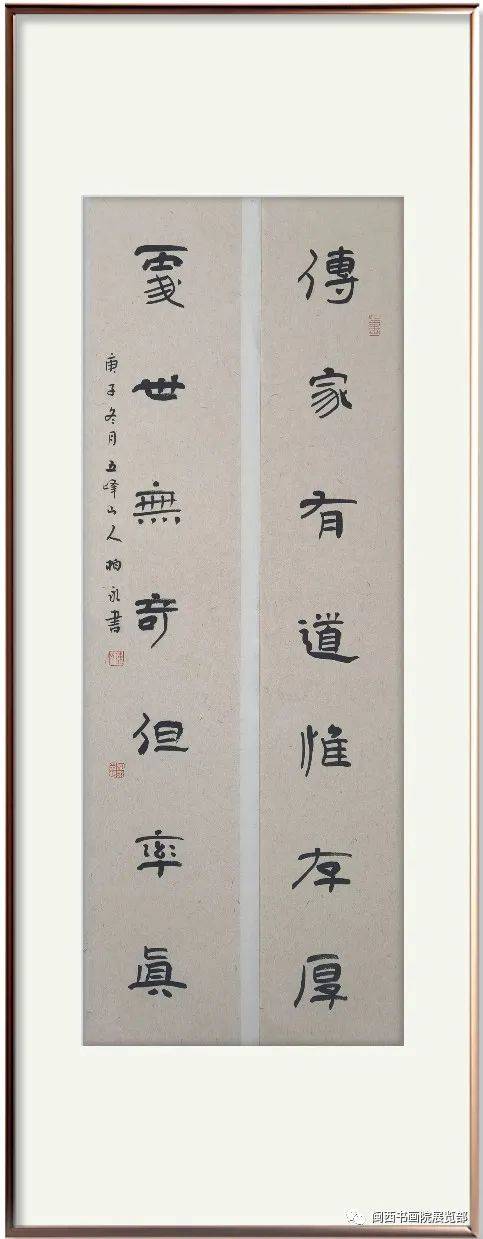 傳家有道惟存厚
處世無奇但率眞
庚子冬月五峰山人柏永書
闽西书画院展览部